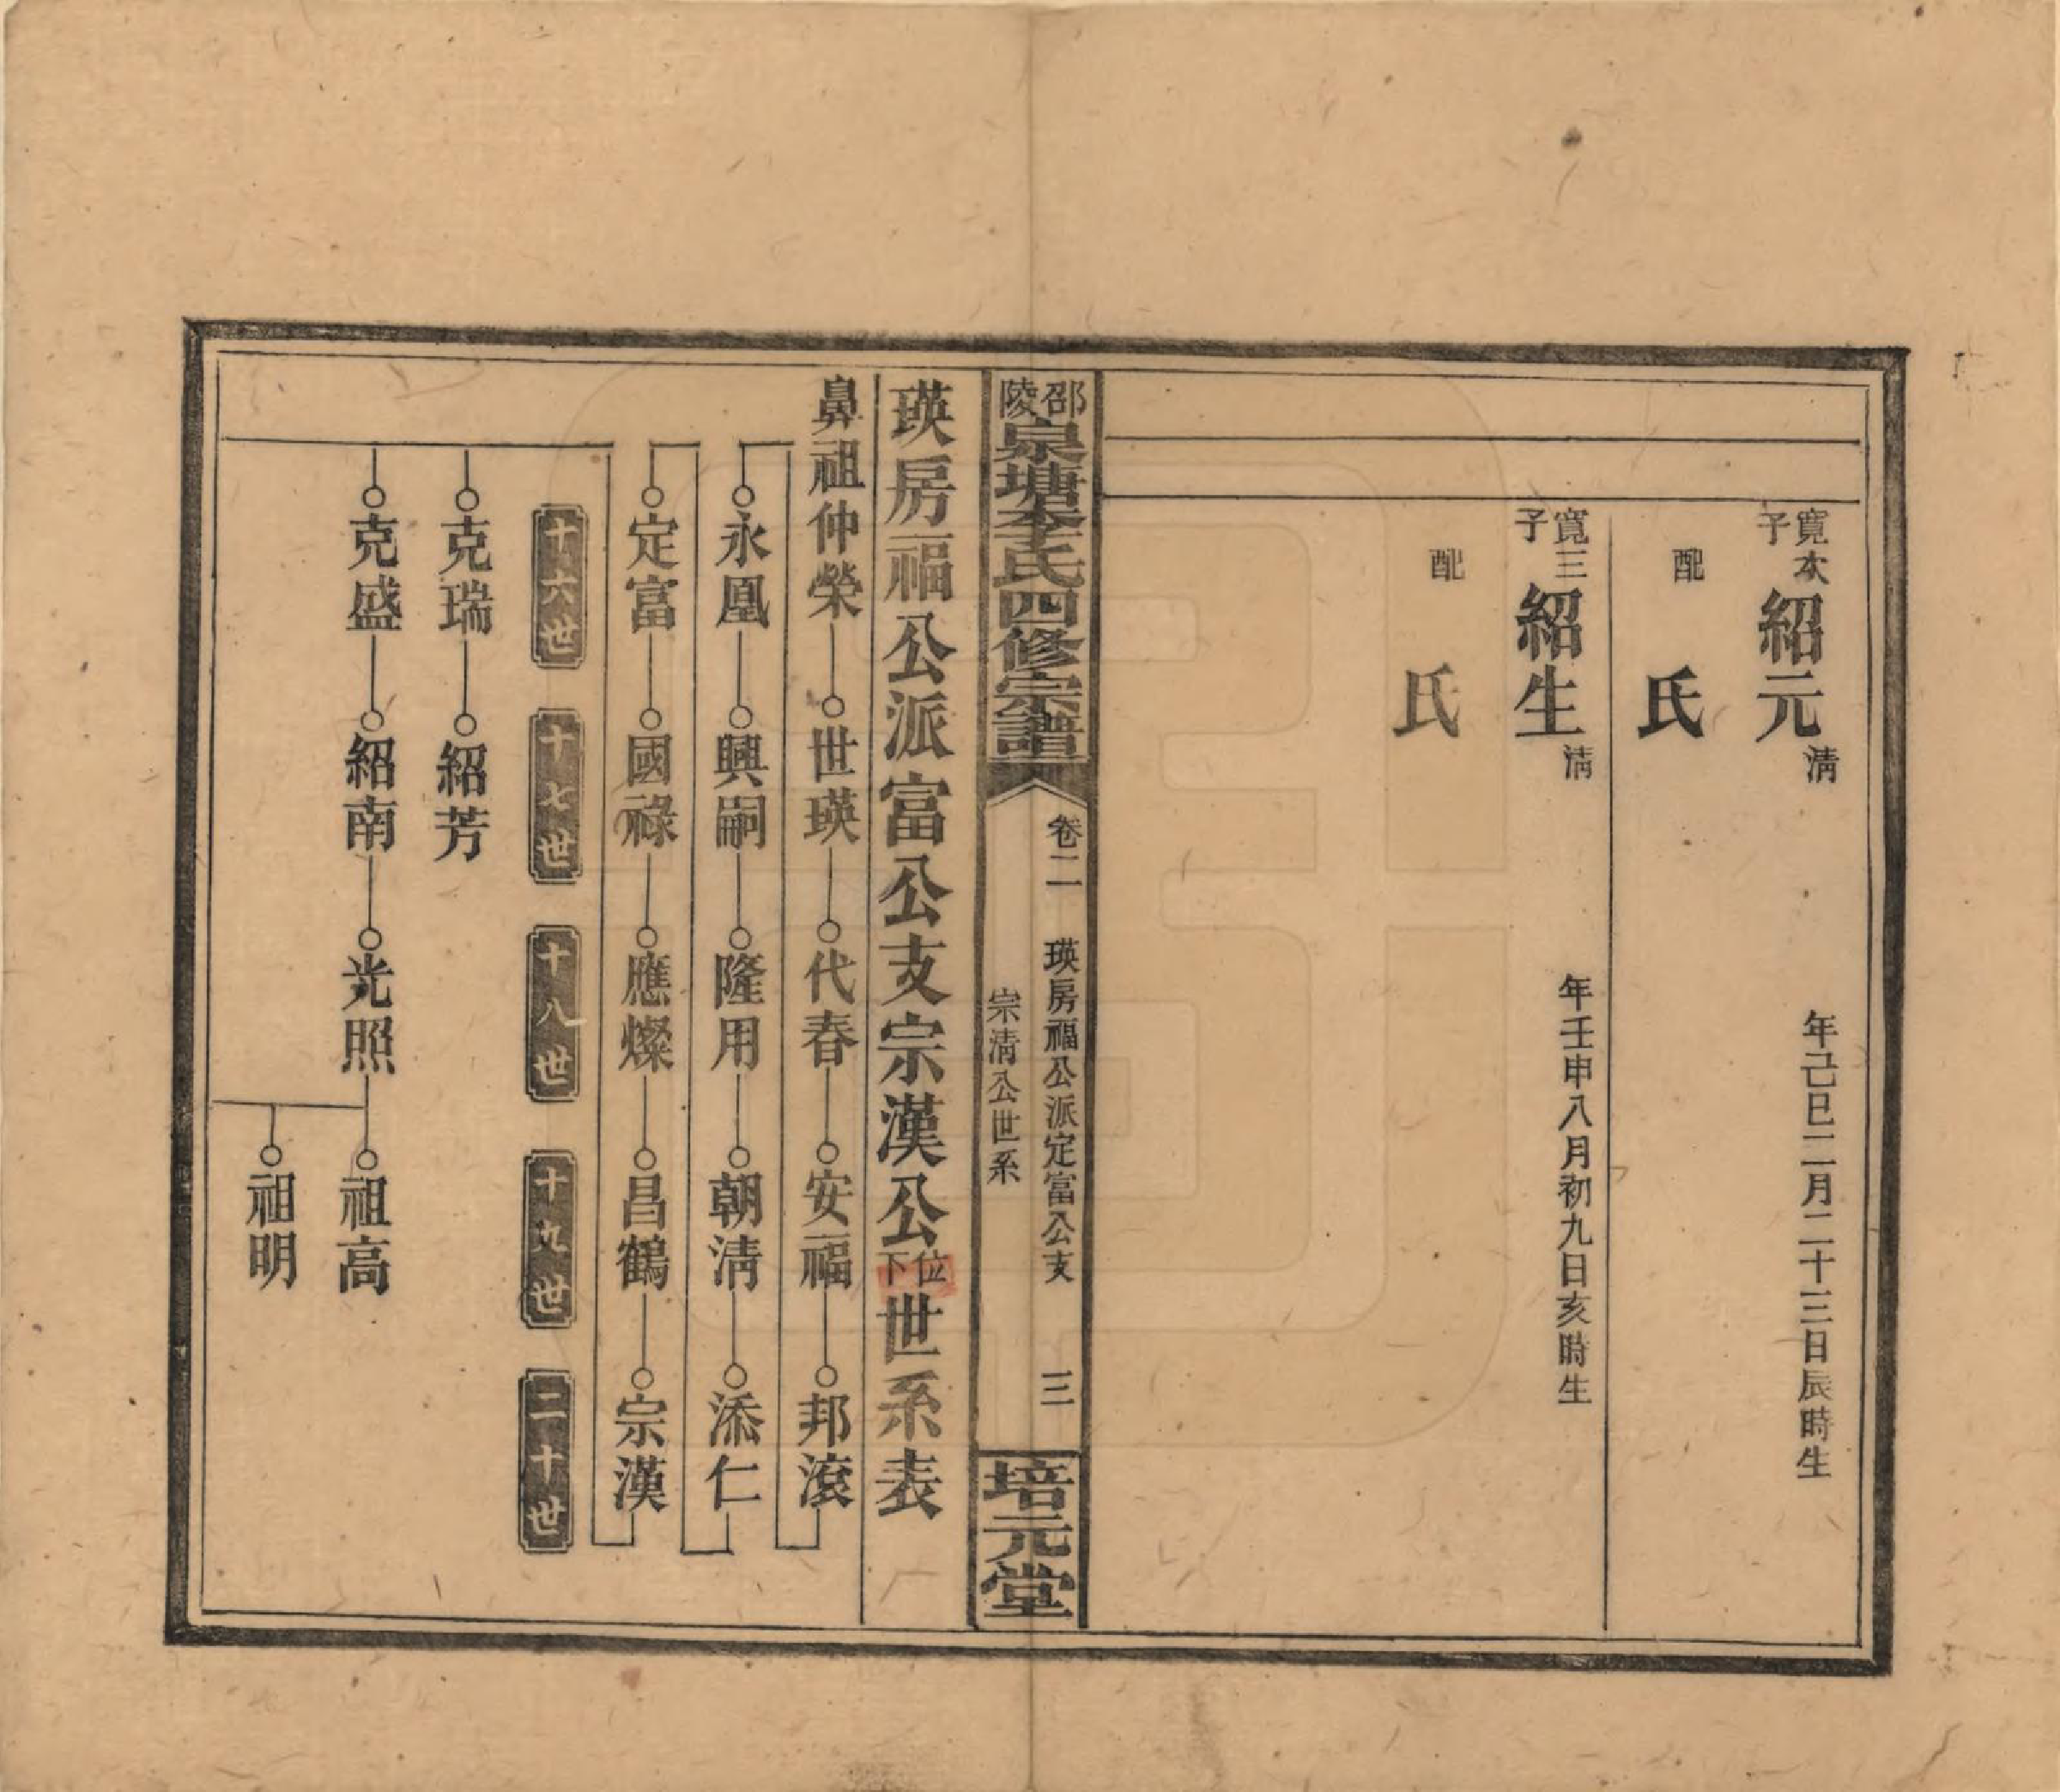 寬本子
紹元
淸
年己巳二月二十三日辰時生
配
氏
寬三子
紹生
淸
年壬申八月初九日亥時生
配
氏
邵陵泉塘李氏四修宗譜
卷二
瑛房福公派定富公支
宗淸公世系
三
培元堂
瑛房福公派富公支宗漢公位下世系表
鼻祖仲榮 世瑛 代春 安福 邦滾
永凰 興嗣 隆用 朝淸 添仁
定富 國祿 應燦 昌鶴 宗漢
十六世 十七世 十八世 十九世 二十世
克瑞 紹芳
克盛 紹南 光照 祖高
祖明